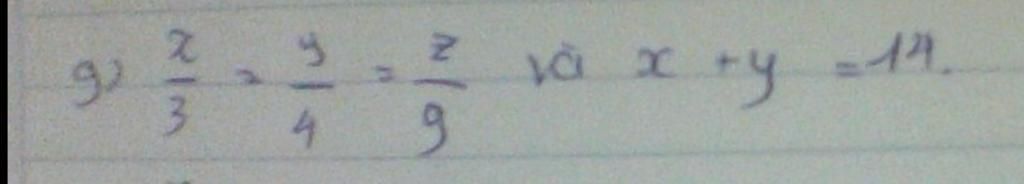 g) x/3 = y/4 = z/9 và x + y = 14.